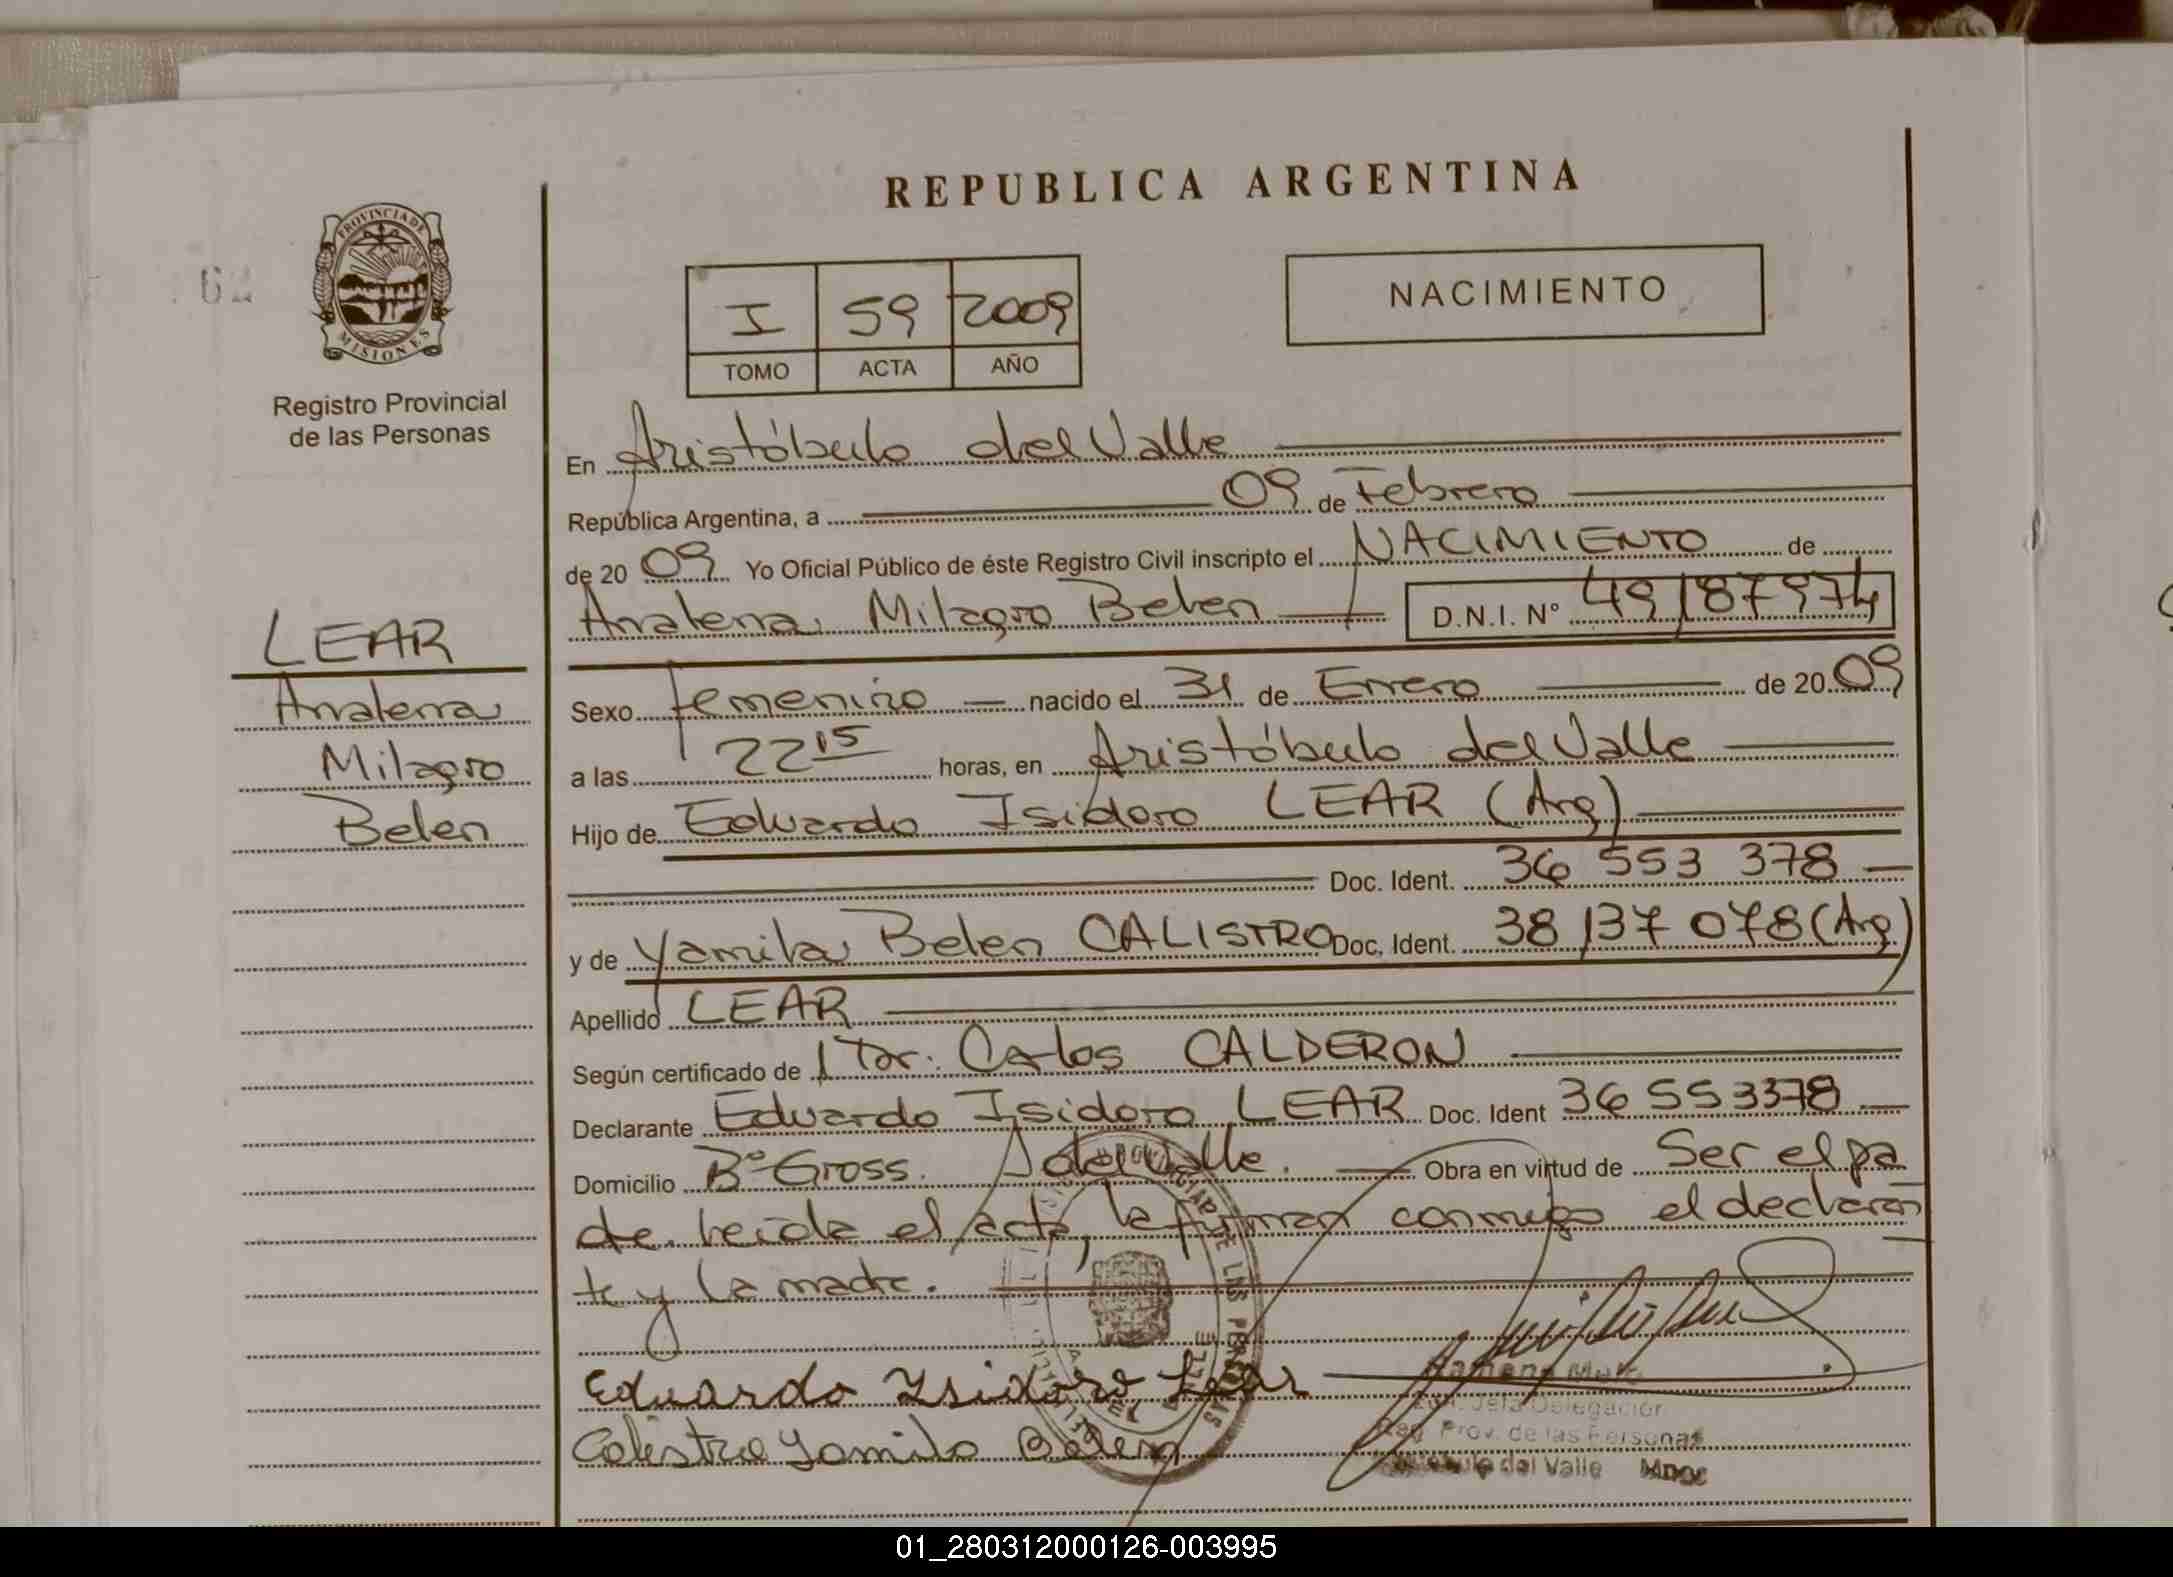 REPUBLICA ARGENTINA
PROVINCIA DE
MISIONES
Registro Provincial
de las Personas
I 59 2009
TOMO ACTA AÑO
NACIMIENTO
En Aristóbulo del Valle
República Argentina, a 09 de Febrero
de 2009 Yo Oficial Público de éste Registro Civil inscripto el NACIMIENTO de
Milagro Belen D.N.I. Nº 49187974
LEAR
Milagro
Belen
Sexo femenino nacido el 31 de Enero de 2009
a las 22 15 horas, en Aristóbulo del Valle
Hijo de Eduardo Isidoro LEAR (Arg)
Doc. Ident. 36 553 378
y de Yamila Belen CALISTRO Doc. Ident. 38 137 078 (Arg)
Apellido LEAR
Según certificado de Dr. Carlos CALDERON
Declarante Eduardo Isidoro LEAR Doc. Ident 36 553378
Domicilio Bº Gross. A del Valle. Obra en virtud de Ser el pa
dre. leida el acta, la firman conmigo el declaran
te y la madre.
Eduardo Isidoro Lear
Calistro Yamila Belen
Jefa Delegación
Reg. Prov. de las Personas
del Valle Mnes
01_280312000126-003995